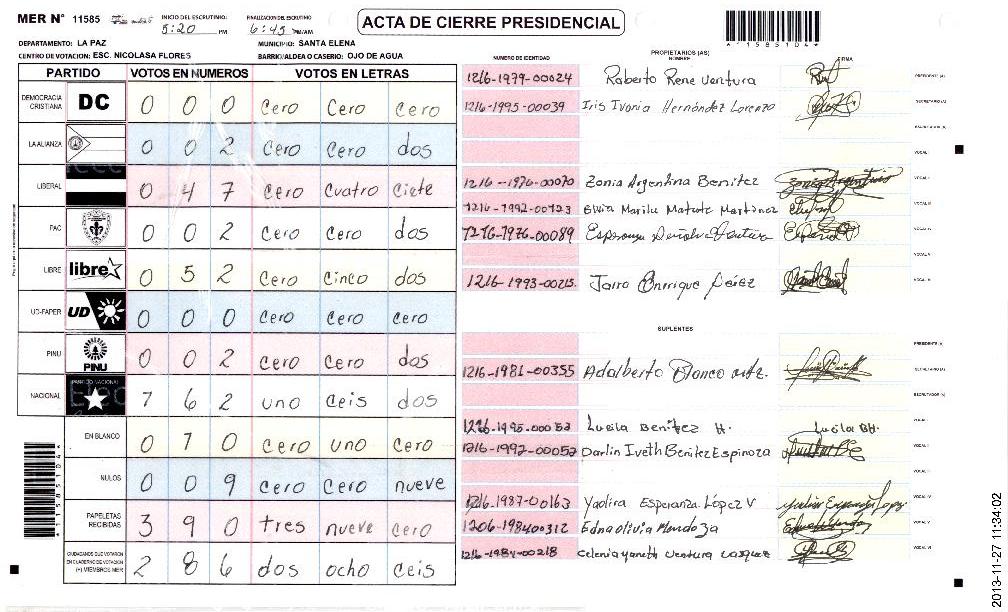 MER N° 11585
INICIO DEL ESCRUTINIO:
5:20 PM
FINALIZACION DEL ESCRUTINIO
6:45 PM/AM
ACTA DE CIERRE PRESIDENCIAL
*11585104*
DEPARTAMENTO: LA PAZ
MUNICIPIO: SANTA ELENA
CENTRO DE VOTACION: ESC. NICOLASA FLORES
BARRIO/ALDEA O CASERIO: OJO DE AGUA
PARTIDO VOTOS EN NUMEROS VOTOS EN LETRAS
DEMOCRACIA CRISTIANA DC 0 0 0 cero cero cero
LA ALIANZA 0 0 2 cero cero dos
LIBERAL 0 4 7 cero cuatro ciete
PAC 0 0 2 cero cero dos
LIBRE libre 0 5 2 cero cinco dos
UD-FAPER UD 0 0 0 cero cero cero
PINU PINU 0 0 2 cero cero dos
NACIONAL PARTIDO NACIONAL 1 6 2 uno ceis dos
EN BLANCO 0 1 0 cero uno cero
NULOS 0 0 9 cero cero nueve
PAPELETAS RECIBIDAS 3 9 0 tres nueve cero
CIUDADANOS QUE VOTARON EN CUADERNO DE VOTACION (+) MIEMBROS MER 2 8 6 dos ocho ceis
PROPIETARIOS (AS)
NUMERO DE IDENTIDAD NOMBRE FIRMA
1216-1979-00024 Roberto Rene Ventura PRESIDENTE (A)
1216-1995-00039 Iris Ivonia Hernández Lorenzo SECRETARIO (A)
ESCRUTADOR (A)
VOCAL I
1216-1976-00070 Zonia Argentina Benitez VOCAL II
1216-1992-00123 Elvia Marilu Matute Martinez VOCAL III
1216-1976-00089 Esperanza VOCAL IV
VOCAL V
1216-1993-00215. Jairo Enrrique Pérez VOCAL VI
SUPLENTES
PRESIDENTE (A)
1216-1981-00355 Adalberto Blanco SECRETARIO (A)
ESCRUTADOR (A)
1216-1995-00053 Lucila Benitez H. Lucila BH. VOCAL I
1216-1992-00052 Darlin Iveth Benitez Espinoza VOCAL II
VOCAL III
1216-1987-00163 Yadira Esperanza López V VOCAL IV
1206-1984-00312 Edna olivia Mendoza VOCAL V
1216-1984-00218 Celenia yaneth ventura vasquez VOCAL VI
2013-11-27 11:34:02